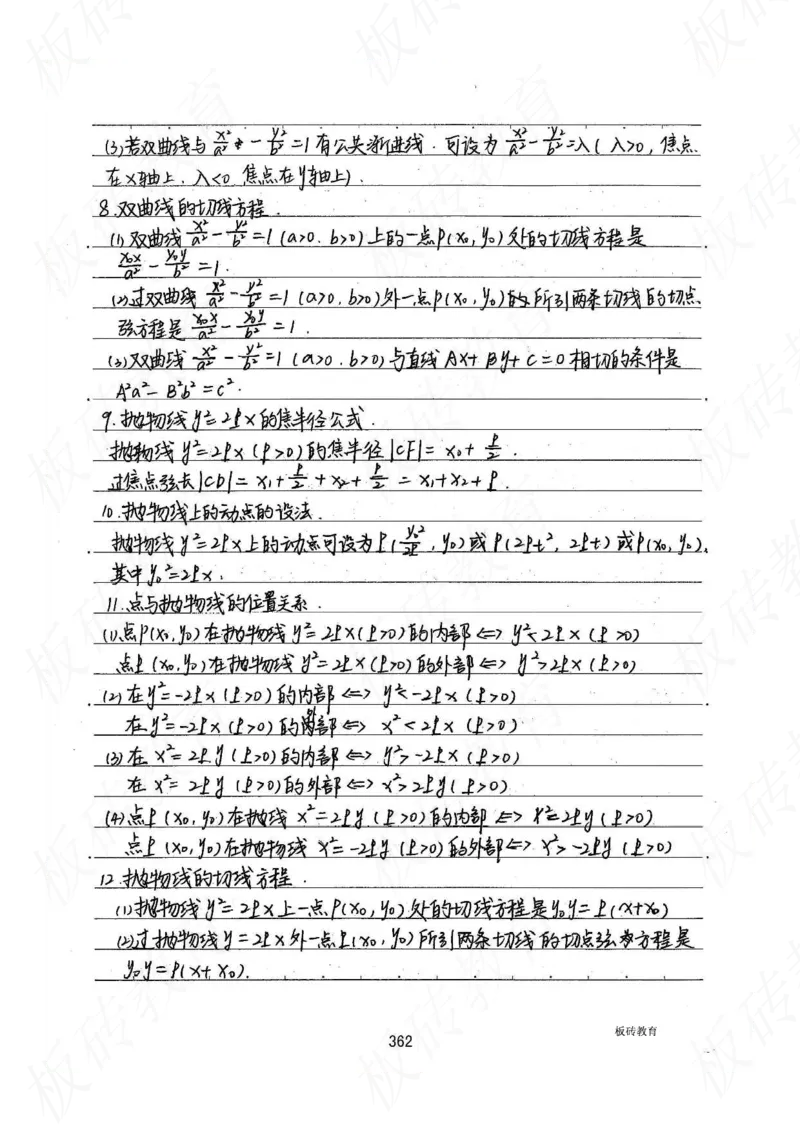 (3)若双曲线与 x²/a² - y²/b² =1有公共渐进线.可设为 x²/a² - y²/b² =λ(λ>0,焦点
在x轴上.λ<0,焦点在y轴上).
8.双曲线的切线方程.
(1)双曲线 x²/a² - y²/b² =1(a>0.b>0)上的一点P(x₀,y₀)处的切线方程是
x₀x/a² - y₀y/b² =1.
(2)过双曲线 x²/a² - y²/b² =1(a>0,b>0)外一点P(x₀,y₀)的所引两条切线的切点
弦方程是 x₀x/a² - x₀y/b² =1.
(3)双曲线 x²/a² - y²/b² =1(a>0.b>0)与直线Ax+By+C=0相切的条件是
A²a²-B²b²=c².
9.抛物线y²=2px的焦半径公式.
抛物线y²=2px(p>0)的焦半径|CF|=x₀+p/2.
过焦点弦长|CD|=x₁+p/2+x₂+p/2=x₁+x₂+p.
10.抛物线上的动点的设法.
抛物线y²=2px上的动点可设为P(y₀²/2p,y₀)或P(2pt²,2pt)或P(x₀,y₀).
其中y₀²=2px.
11.点与抛物线的位置关系.
(1)点P(x₀,y₀)在抛物线y²=2px(p>0)的内部⇔y²<2px(p>0)
点P(x₀,y₀)在抛物线y²=2px(p>0)的外部⇔y²>2px(p>0)
(2)在y²=-2px(p>0)的内部⇔y²<-2px(p>0)
在y²=-2px(p>0)的外部⇔x²<2px(p>0)
(3)在x²=2py(p>0)的内部⇔y²>-2px(p>0)
在x²=2py(p>0)的外部⇔x²>2py(p>0)
(4)点P(x₀,y₀)在抛线x²=2py(p>0)的内部⇔x²=2py(p>0)
点P(x₀,y₀)在抛物线x²=-2py(p>0)的外部⇔x²>-2py(p>0)
12.抛物线的切线方程.
(1)抛物线y²=2px上一点P(x₀,y₀)处的切线方程是y₀y=p(x+x₀)
(2)过抛物线y=2px外一点P(x₀,y₀)所引两条切线的切点弦方程是
y₀y=p(x+x₀).
板砖教育
362